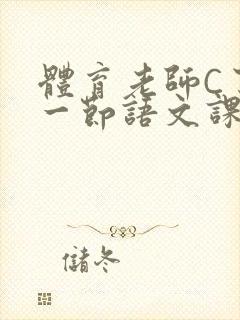 體育老師C
一節語文課
儲冬